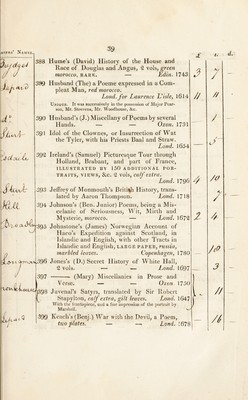 39
388 Hume's (David) History of the House and
Race of Douglas and Angus, 2 vols, green
morocco, RARE. — Edin. 1743
389 Husband (The) a Poeme expressed in a Com-
pleat Man, red morocco.
Lond. for Laurence L'isle, 1614
UNIQUE. It was successively in the possession of Major Pear-
son, Mr. Steevens, Mr. Woodhouse, &c.
390 Husband's (J.) Miscellany of Poems by several
Hands. — Oxon. 1731
391 Idol of the Clownes, or Insurrection of Wat
the Tyler, with his Priests Baul and Straw.
Lond. 1654
392 Ireland's (Samuel) Picturesque Tour through
Holland, Brabant, and part of France,
ILLUSTRATED BY 150 ADDITIONAL POR-
TRAITS, VIEWS, &c. 2 vols, calf extra.
Lond. 1796
393 Jeffery of Monmouth's British History, trans-
lated by Aaron Thompson. Lond. 1718
394 Johnson's (Ben. Junior) Poems, being a Mis-
celanie of Seriousness, Wit, Mirth and
Mysterie, morocco. — Lond. 1672
395 Johnstone's (James) Norwegian Account of
Haco's Expedition against Scotland, in
Islandic and English, with other Tracts in
Islandic and English, LARGE PAPER, russia,
marbled leaves. Copenhagen, 1780
396 Jones's (D.) Secret History of White Hall,
2 vols. — Lond. 1697
397 ——— (Mary) Miscellanies in Prose and
Verse. — Oxon 1750
398 Juvenal's Satyrs, translated by Sir Robert
Stapylton, calf extra, gilt leaves. Lond. 1647
With the frontispiece, and a fine impression of the portrait by
Marshall.
399 Keach's (Benj.) War with the Devil, a Poem,
two plates. — Lond. 1678